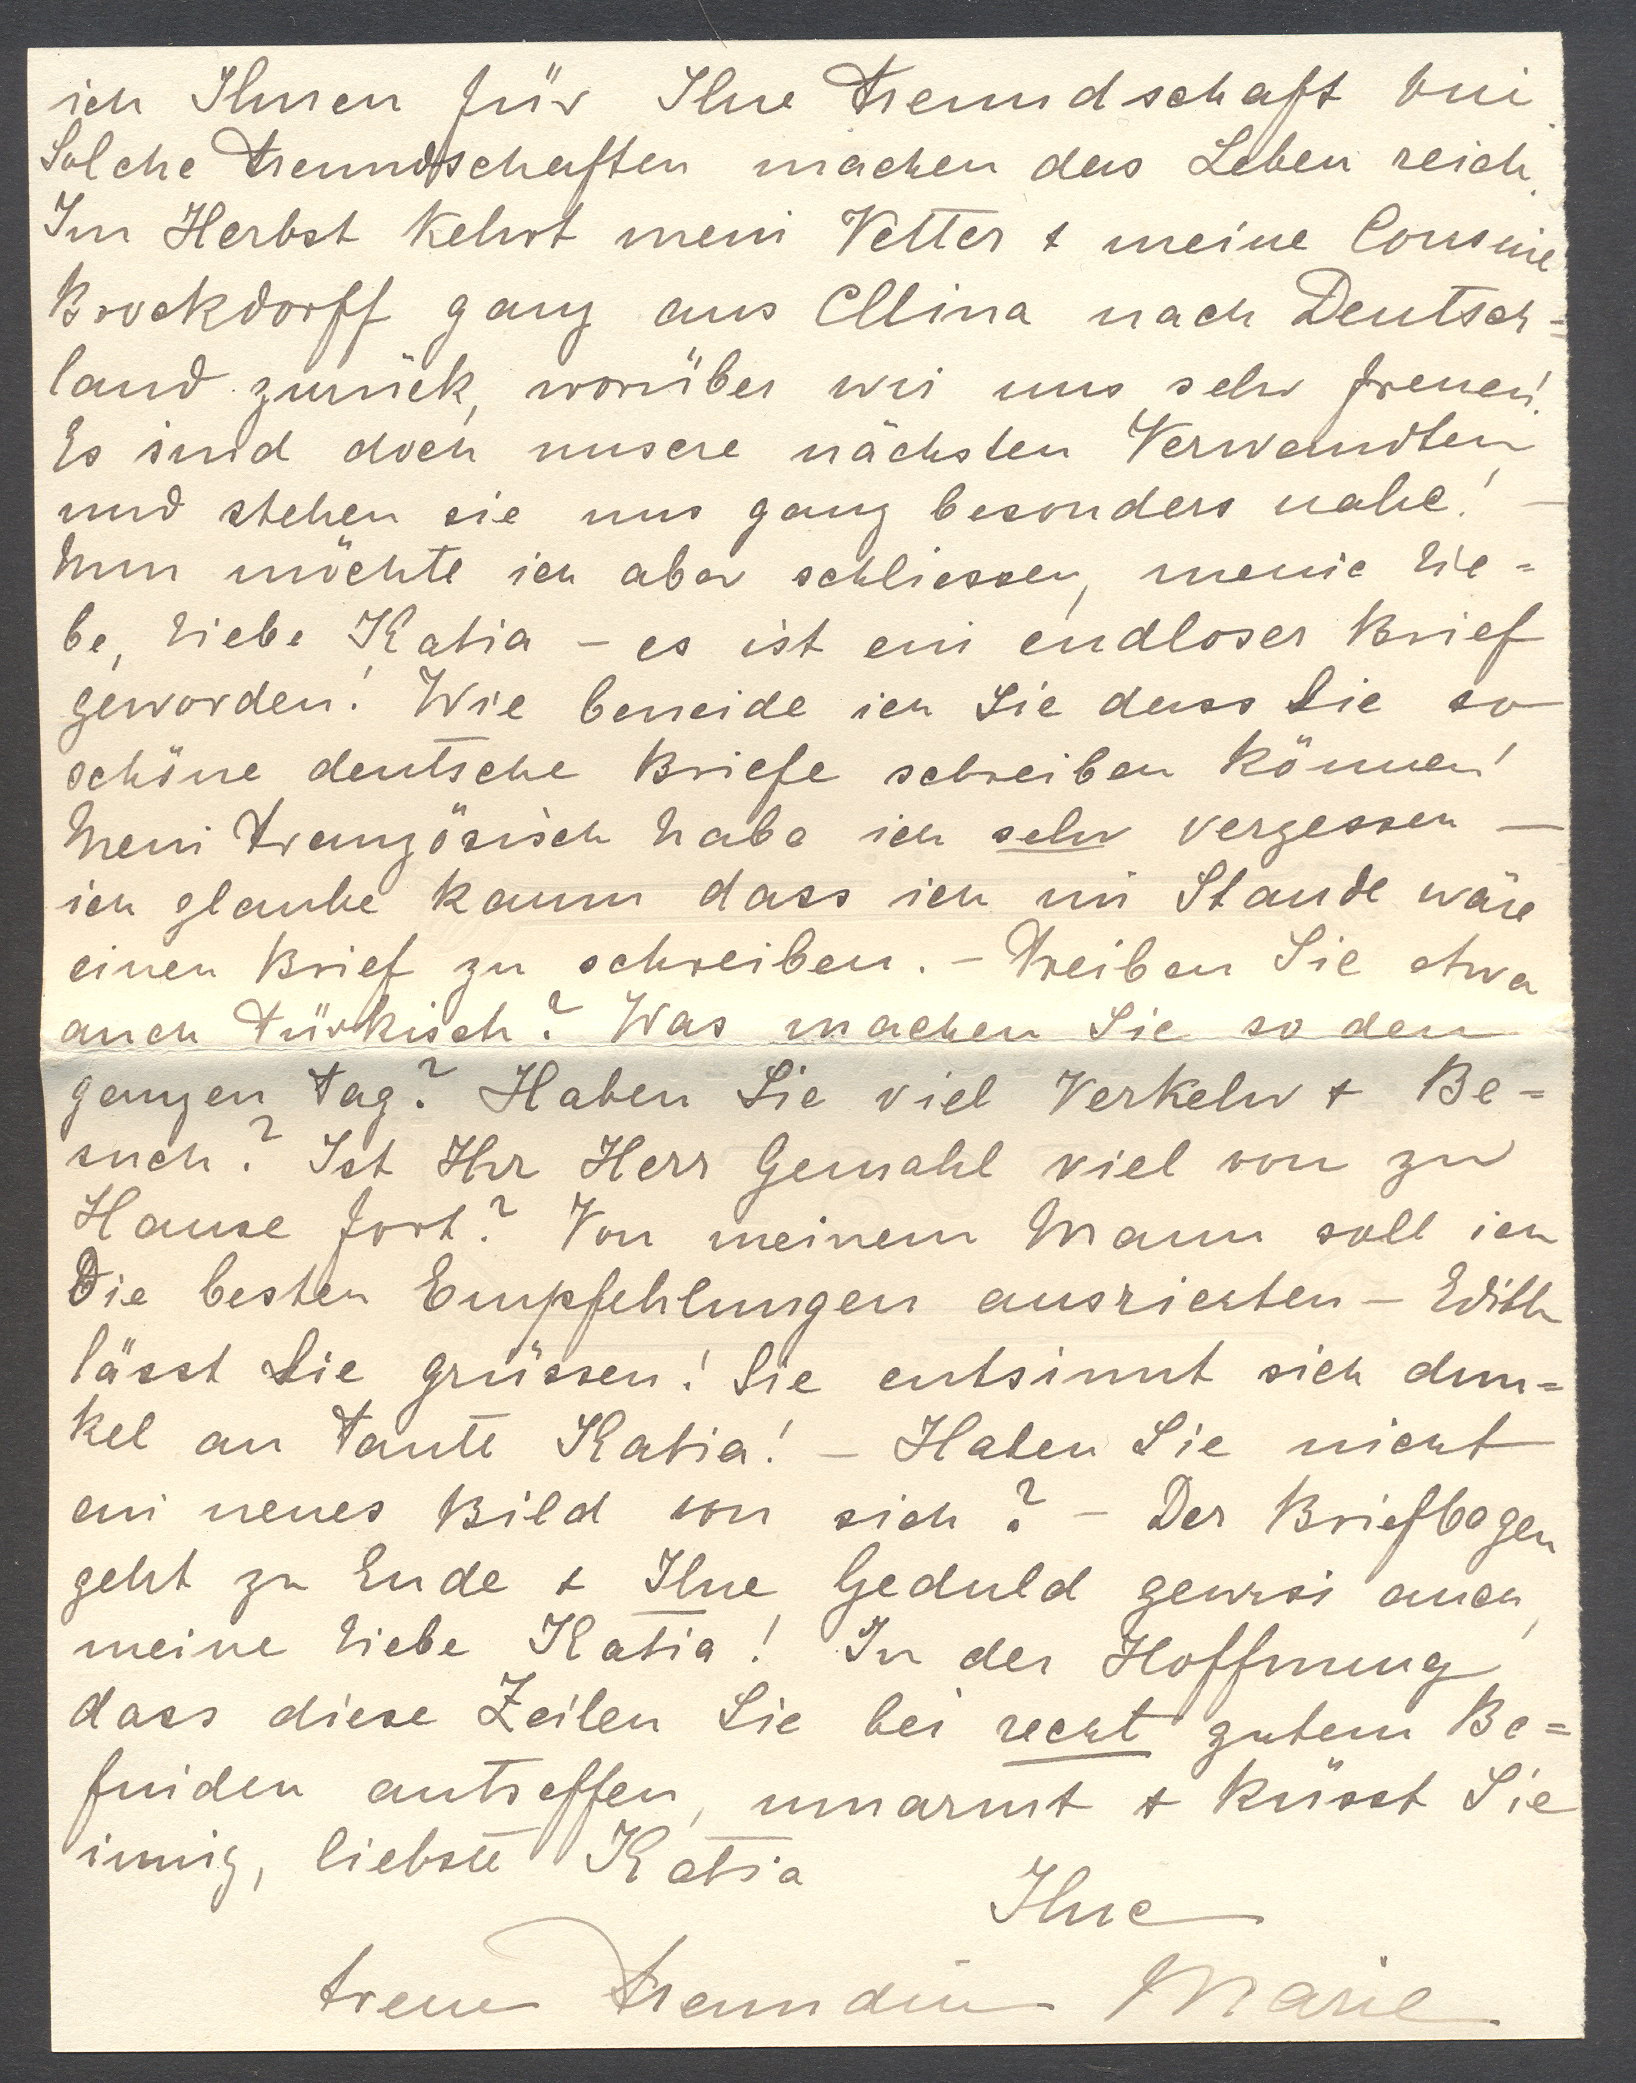 ich Ihnen für Ihre Freundschaft bin
Solche Freundschaften machen das Leben reich.
Im Herbst kehrt mein Vetter & meine Cousine
Brockdorff ganz aus China nach Deutsch=
land zurück, worüber wir uns sehr freuen!
Es sind doch unsere nächsten Verwandten
und stehen sie uns ganz besonders nahe! –
Nun möchte ich aber schliessen, meine lie=
be, liebe Katia – es ist ein endloser Brief
geworden! Wie beneide ich Sie dass Sie so
schöne deutsche Briefe schreiben können!
Mein Französisch habe ich sehr vergessen –
ich glaube kaum dass ich im Stande wäre
einen Brief zu schreiben. – Treiben Sie etwa
auch türkisch? Was machen Sie so den
ganzen Tag? Haben Sie viel Verkehr & Be=
such? Ist Ihr Herr Gemahl viel von zu
Hause fort? Von meinem Mann soll ich
Die besten Empfehlungen ausrichten – Edith
lässt Sie grüssen! Sie entsinnt sich dun=
kel an Tante Katia! – Haben Sie nicht
ein neues Bild von sich? – Der Briefbogen
geht zu Ende & Ihre Geduld gewiss auch,
meine liebe Katia! In der Hoffnung
dass diese Zeilen Sie bei recht gutem Be=
finden antreffen, umarmt & küsst Sie
innig, liebste Katia
Ihre
treue Freundin Marie